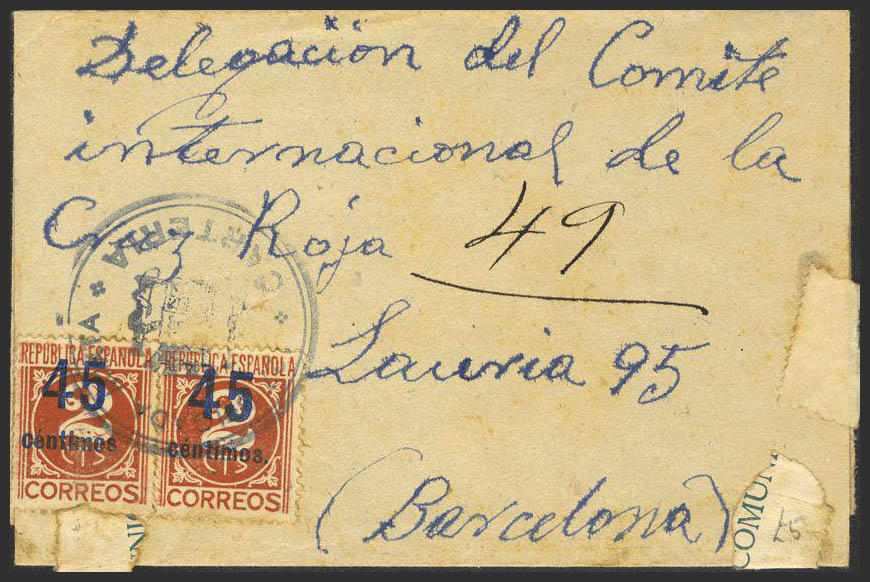 Delegación del Comite
internacional de la
Cruz Roja 49
Lauria 95
(Barcelona)
REPUBLICA ESPAÑOLA
45
2
céntimos
CORREOS
REPUBLICA ESPAÑOLA
45
2
céntimos.
CORREOS
COMUN
45
NI